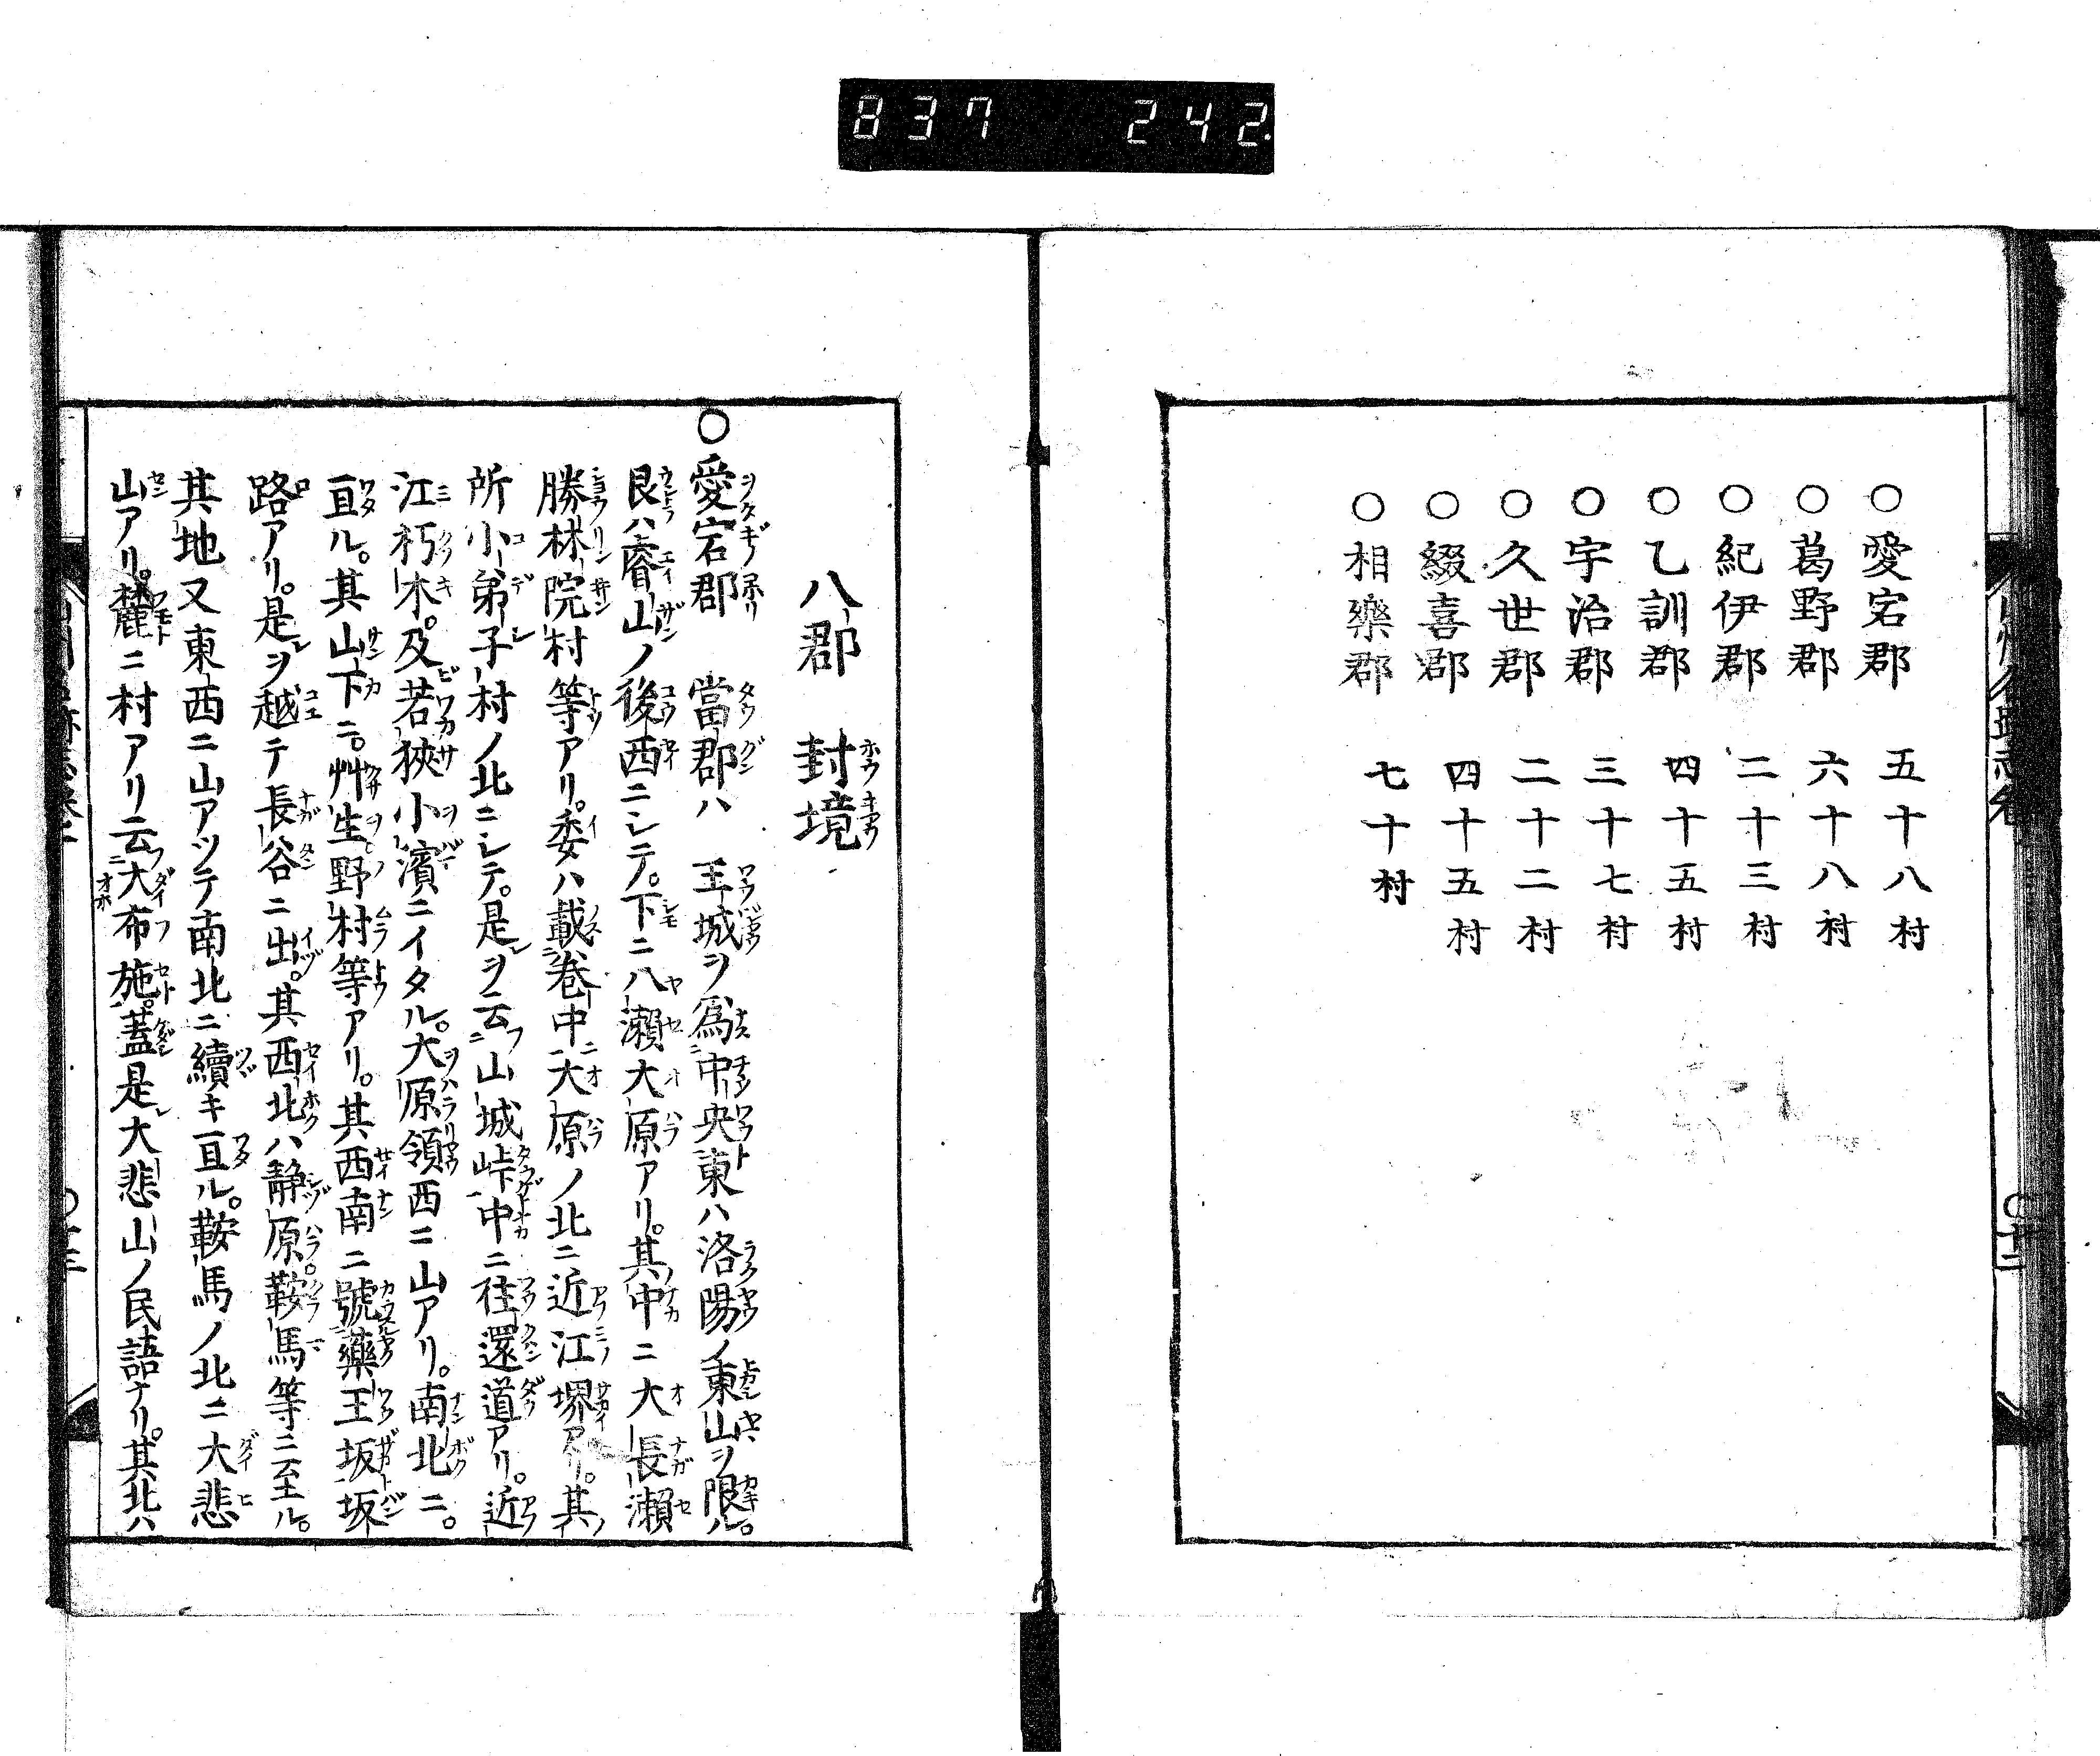 837 242.
○愛宕郡 五十八村
○葛野郡 六十八村
○紀伊郡 二十三村
○乙訓郡 四十五村
○宇治郡 三十七村
○久世郡 二十二村
○綴喜郡 四十五村
○相樂郡 七十村
八郡 封境
○愛宕郡 當郡ハ 王城ヲ爲中央東ハ洛陽ノ東山ヲ限ル。
艮ハ睿山ノ後西ニシテ。下ニ八瀬大原アリ。其中ニ大長瀬
勝林院村等アリ。委ハ載巻中大原ノ北ニ近江堺アリ。其
所小弟子村ノ北ニシテ。是ヲ云山城峠中ニ往還道アリ。近
江朽木。及若狹小濱ニイタル。大原領西ニ山アリ。南北ニ。
亘ル。其山下ニ。艸生野村等アリ。其西南ニ號藥王坂坂
路アリ。是ヲ越テ長谷ニ出。其西北ハ静原鞍馬等ニ至ル。
其地又東西ニ山アツテ南北ニ續キ亘ル。鞍馬ノ北ニ大悲
山アリ。麓ニ村アリ云大布施。蓋是大悲山ノ民語ナリ。其北ハ